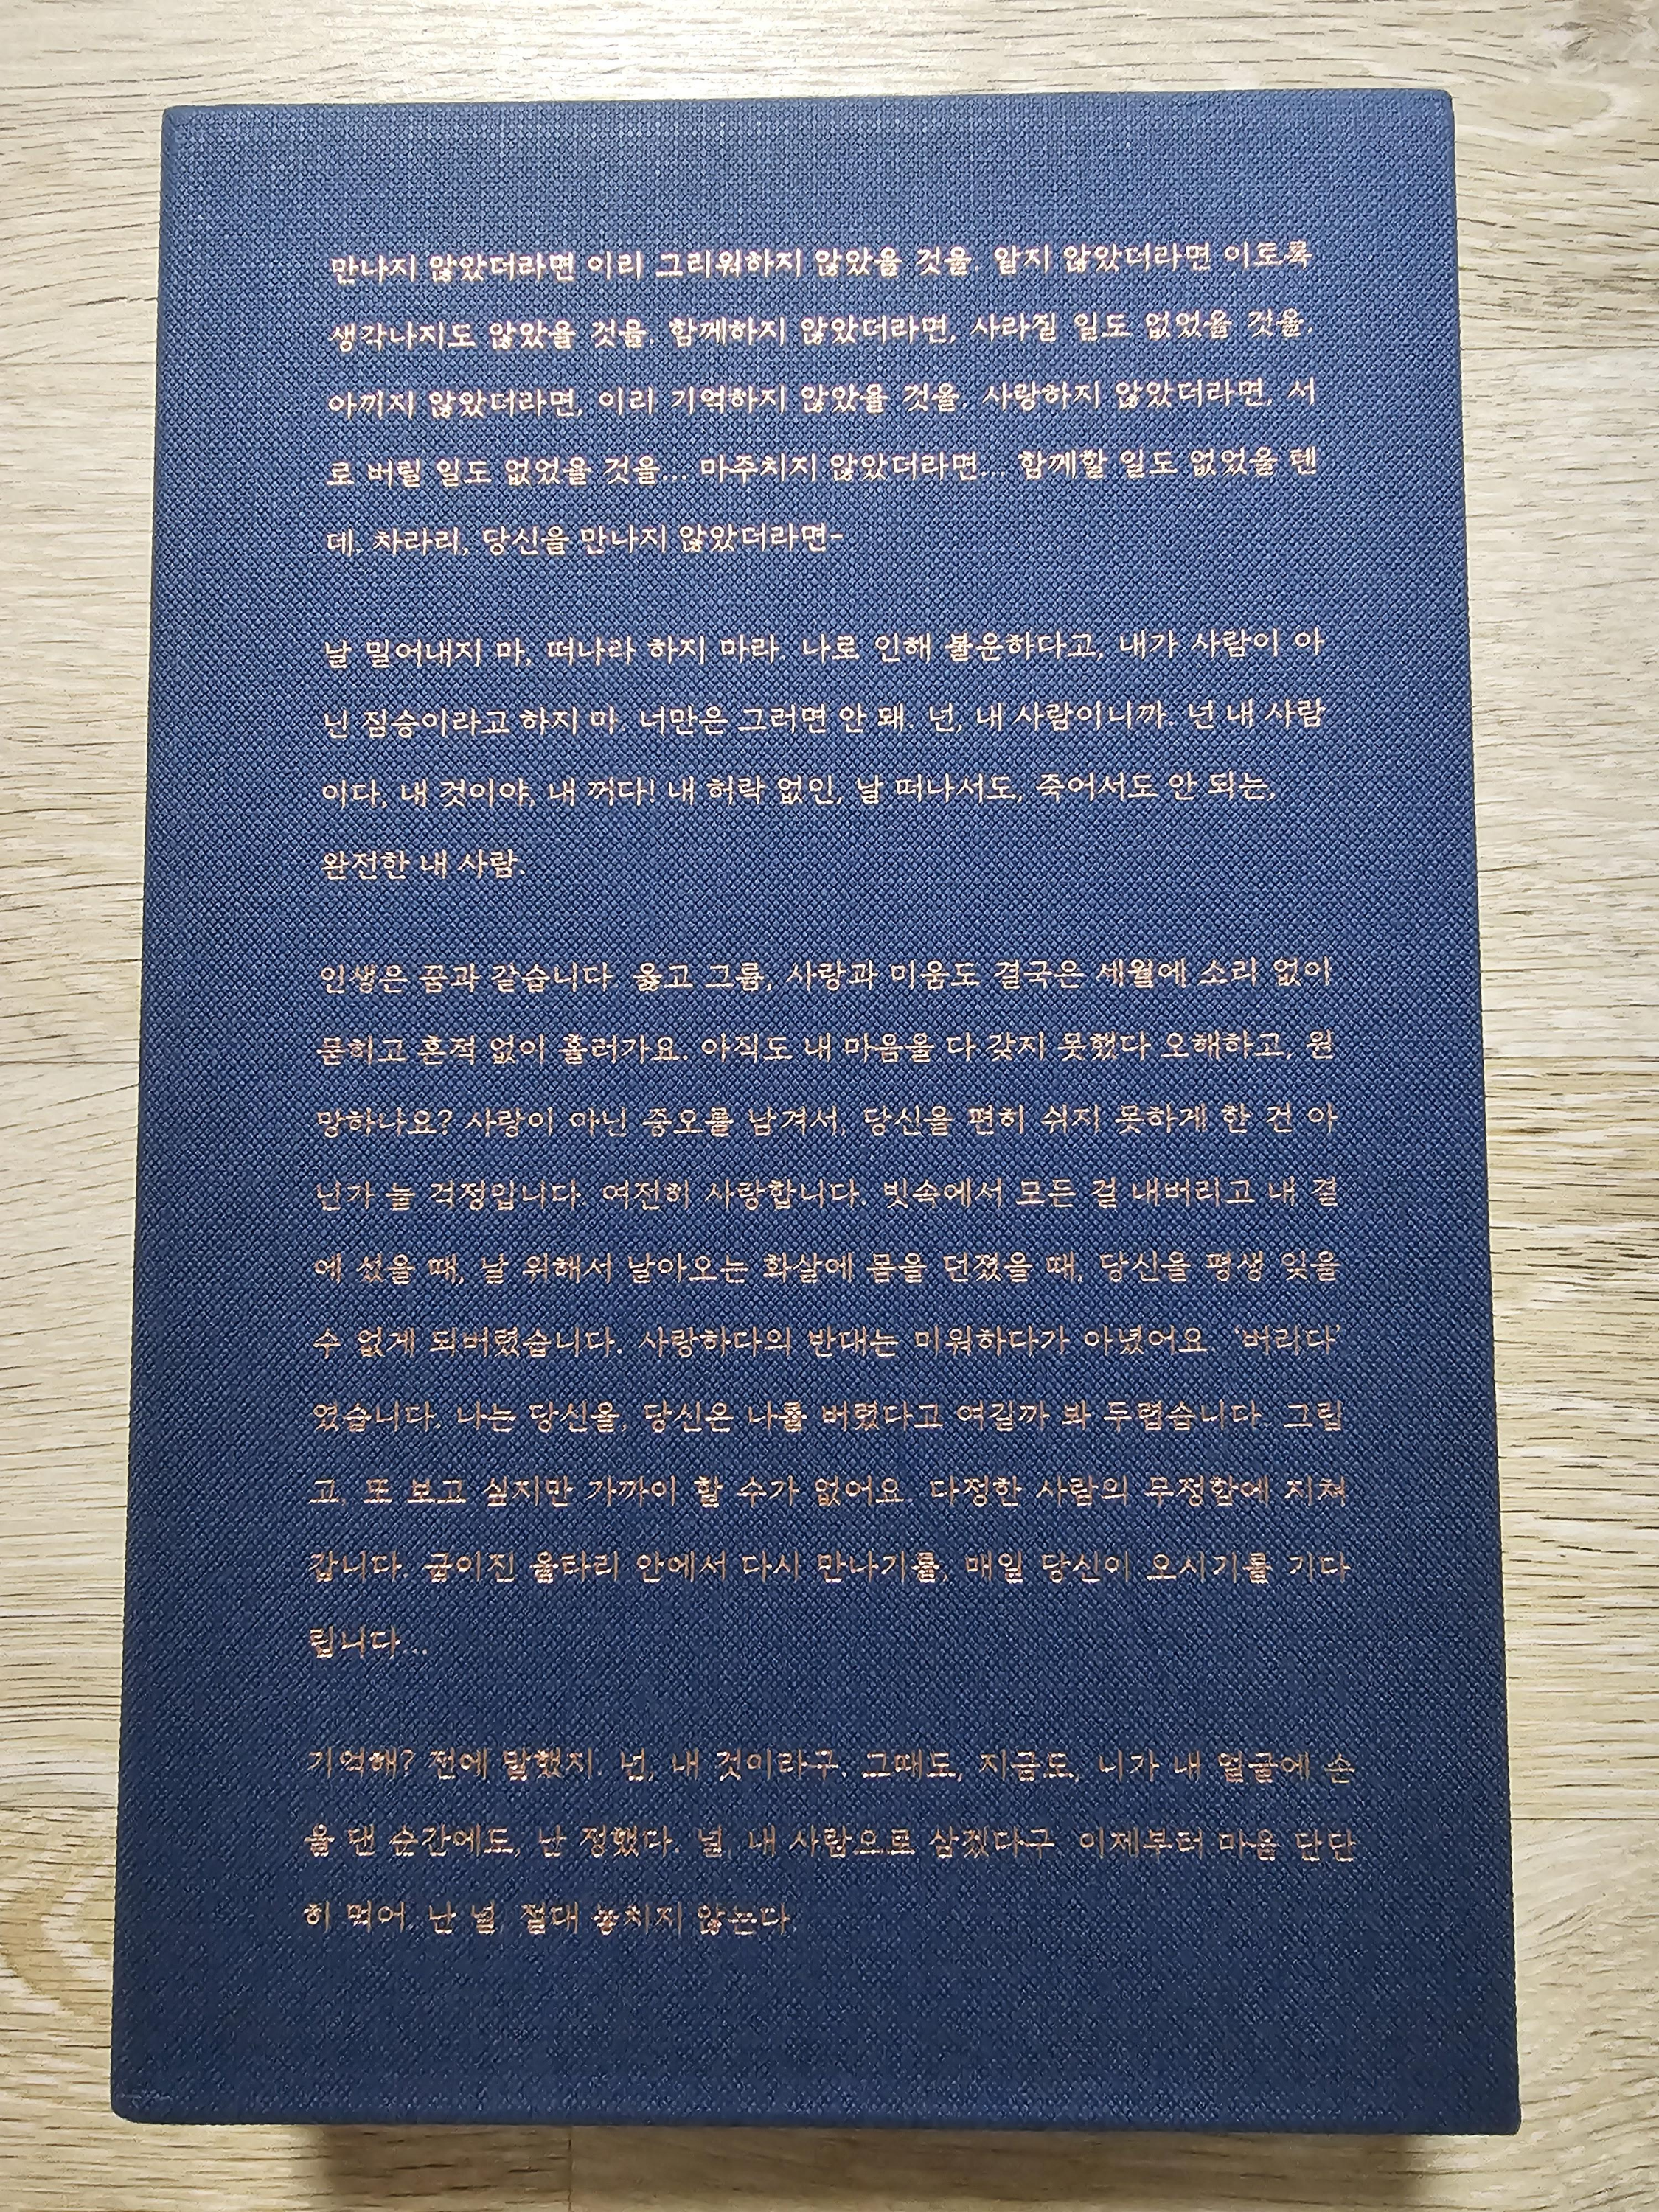 만나지 않았더라면 이리 그리워하지 않았을 것을. 알지 않았더라면 이토록
생각나지도 않았을 것을. 함께하지 않았더라면, 사라질 일도 없었을 것을.
아끼지 않았더라면, 이리 기억하지 않았을 것을. 사랑하지 않았더라면, 서
로 버릴 일도 없었을 것을... 마주치지 않았더라면... 함께할 일도 없었을 텐
데, 차라리, 당신을 만나지 않았더라면-
날 밀어내지 마, 떠나라 하지 마라. 나로 인해 불운하다고, 내가 사람이 아
닌 짐승이라고 하지 마. 너만은 그러면 안 돼. 넌, 내 사람이니까. 넌 내 사람
이다, 내 것이야, 내 꺼다! 내 허락 없인, 날 떠나서도, 죽어서도 안 되는,
완전한 내 사람.
인생은 꿈과 같습니다. 옳고 그름, 사랑과 미움도 결국은 세월에 소리 없이
묻히고 흔적 없이 흘러가요. 아직도 내 마음을 다 갖지 못했다 오해하고, 원
망하나요? 사랑이 아닌 증오를 남겨서, 당신을 편히 쉬지 못하게 한 건 아
닌가 늘 걱정입니다. 여전히 사랑합니다. 빗속에서 모든 걸 내버리고 내 곁
에 섰을 때, 날 위해서 날아오는 화살에 몸을 던졌을 때, 당신을 평생 잊을
수 없게 되버렸습니다. 사랑하다의 반대는 미워하다가 아녔어요. '버리다'
였습니다. 나는 당신을, 당신은 나를 버렸다고 여길까 봐 두렵습니다. 그립
고, 또 보고 싶지만 가까이 할 수가 없어요. 다정한 사람의 무정함에 지쳐
갑니다. 굽이진 울타리 안에서 다시 만나기를, 매일 당신이 오시기를 기다
립니다...
기억해? 전에 말했지. 넌, 내 것이라구. 그때도, 지금도, 니가 내 얼굴에 손
을 댄 순간에도, 난 정했다. 널, 내 사람으로 삼겠다구. 이제부터 마음 단단
히 먹어. 난 널, 절대 놓치지 않는다.